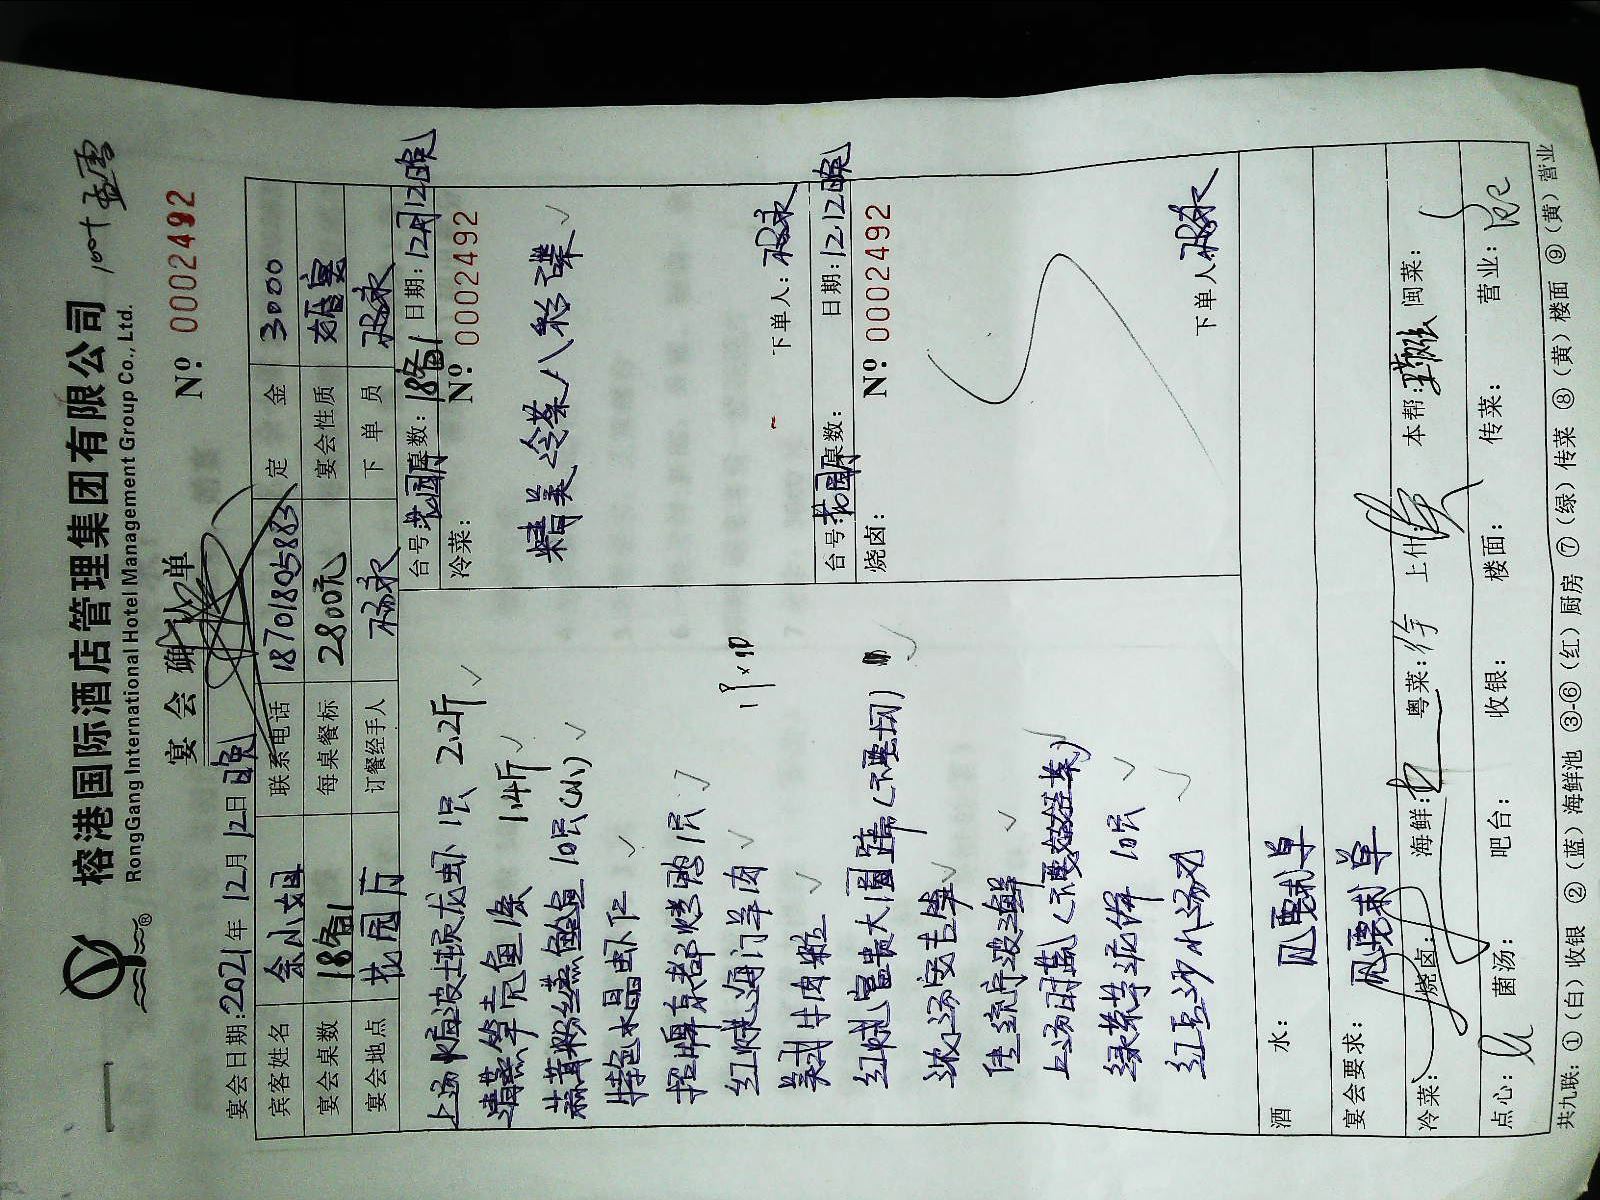 榕港国际酒店管理集团有限公司
RongGang International Hotel Management Group Co., Ltd.
宴会确认单
Nº 0002492
宴会日期:2021年12月12日晚
宾客姓名 余小姐 联系电话 18701805883 定金 3000
宴会桌数 18备1 每桌餐标 2800元 宴会性质 婚宴
宴会地点 花园厅 订餐经手人 下单员
上汤焗波士顿龙虾 1只 2.2斤
清蒸笋壳鱼 1条 1.4斤
蒜茸粉丝蒸鲍鱼 10只(小)
特色水晶虾仁
招牌京都烤鸭 1只
红烧海门羊肉
美式牛肉粒
红烧富贵大圆蹄(不要切)
浓汤
上汤时蔬
绿茶 10只
红豆沙小汤
台号:花园厅 桌数:18备1 日期:12月12日晚
冷菜: Nº 0002492
精美冷菜八彩碟
下单人:
台号:花园厅 桌数: 日期:12.12晚
烧卤: Nº 0002492
下单人
酒水: 见要求单
宴会要求: 见要求单
冷菜: 烧卤: 海鲜: 粤菜:徐 上什: 本帮: 闽菜:
点心: 菌汤: 吧台: 收银: 楼面: 传菜: 营业:
共九联:①(白)收银 ②(蓝)海鲜池 ③-⑥(红)厨房 ⑦(绿)传菜 ⑧(黄)楼面 ⑨(黄)营业